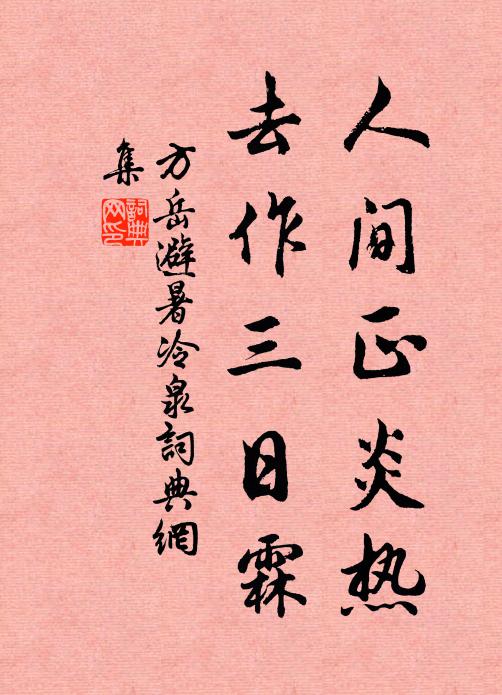 人间正炎热
去作三日霖
方岳避暑冷泉詞典網
集
詞典
网印